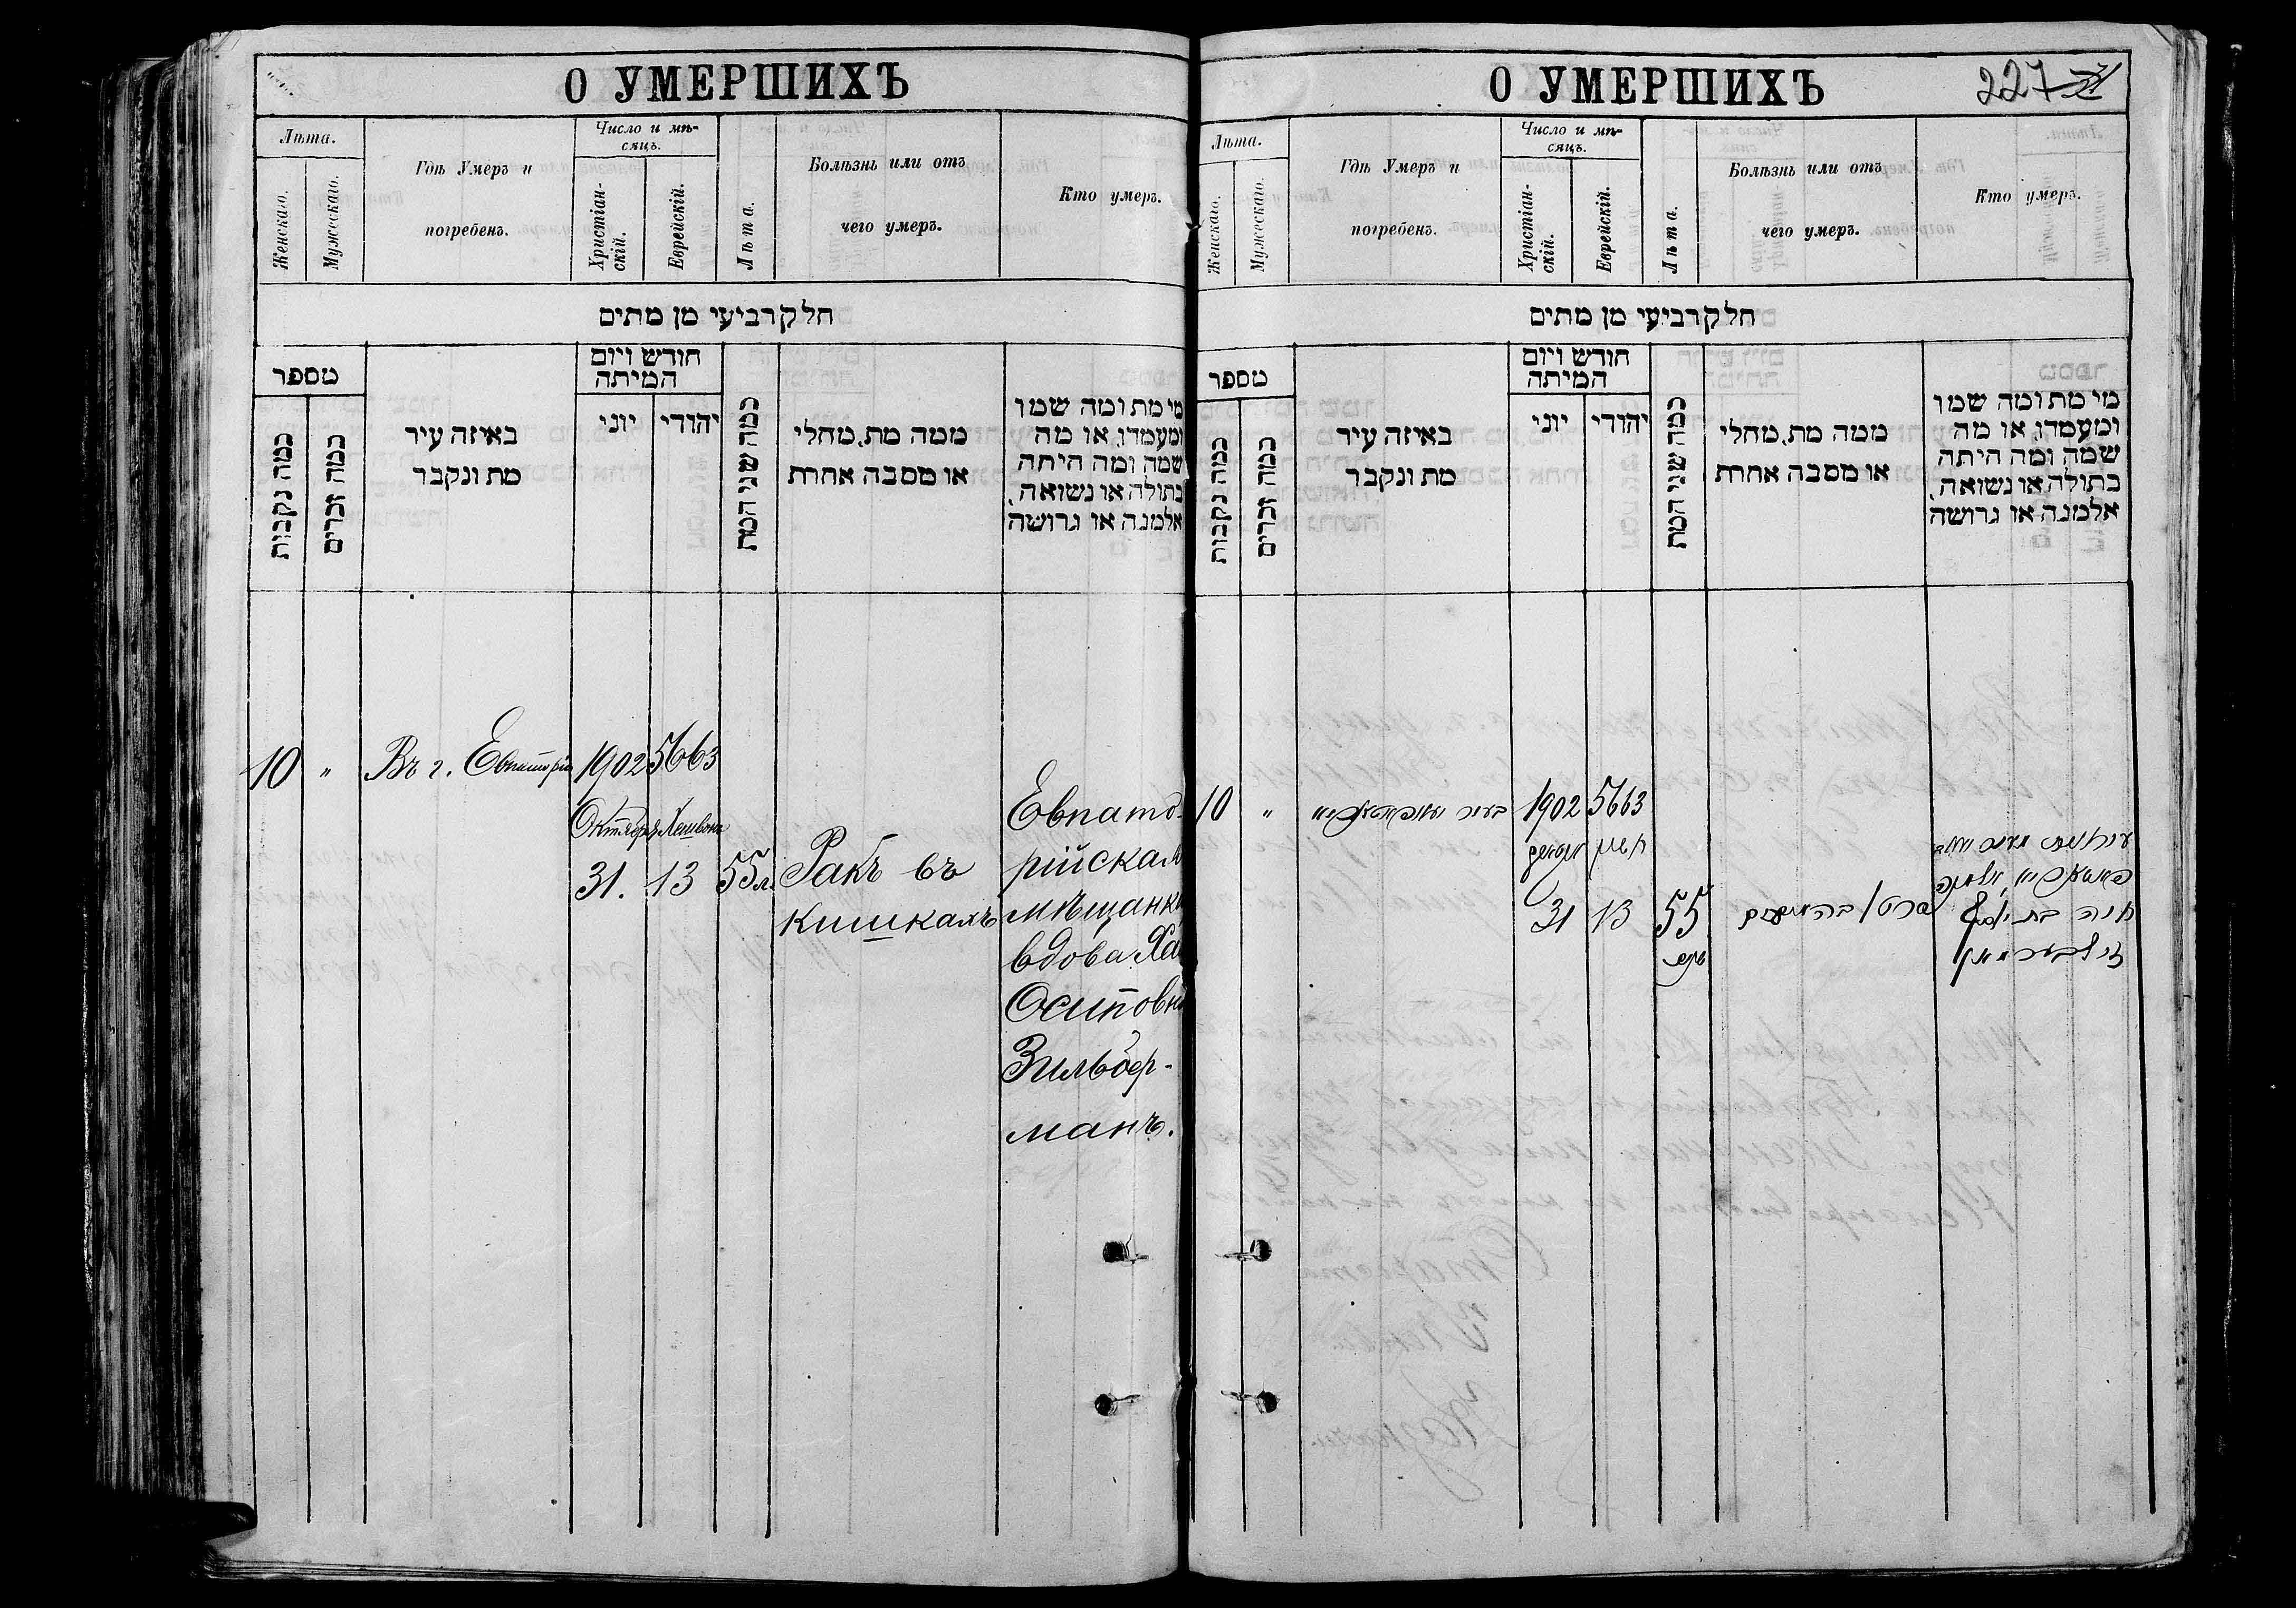 О УМЕРШИХЪ
Лѣта.
Женскаго.
Мужескаго.
Гдѣ Умеръ и
погребенъ.
Число и мѣ-
сяцъ.
Христіан-
скій.
Еврейскій.
Лѣта.
Болѣзнь или отъ
чего умеръ.
Кто умеръ.
חלק רביעי מן מתים
מספר
כמה נקבות
כמה זכרים
באיזה עיר
מת ונקבר
חודש ויום
המיתה
יוני
יהודי
כמה שני המת
ממה מת, מחלי
או מסבה אחרת
מי מת ומה שמו
ומעמדו, או מה
שמה ומה היתה
בתולה או נשואה,
אלמנה או גרושה
10 " Въ г. Евпаторіи 1902 5663
Октября Хешвона
31. 13 55 л. Ракъ въ
кишкахъ
Евпато-
рійская
мѣщанка
вдова Хая
Осиповна
Зильбер-
манъ.
О УМЕРШИХЪ
227
Лѣта.
Женскаго.
Мужескаго.
Гдѣ Умеръ и
погребенъ.
Число и мѣ-
сяцъ.
Христіан-
скій.
Еврейскій.
Лѣта.
Болѣзнь или отъ
чего умеръ.
Кто умеръ.
חלק רביעי מן מתים
מספר
כמה נקבות
כמה זכרים
באיזה עיר
מת ונקבר
חודש ויום
המיתה
יוני
יהודי
כמה שני המת
ממה מת, מחלי
או מסבה אחרת
מי מת ומה שמו
ומעמדו, או מה
שמה ומה היתה
בתולה או נשואה,
אלמנה או גרושה
10 " בעיר 1902 5663
חשון
31 13 55
שנה
אלמנה
חיה בת יוסף
זילבערמאן